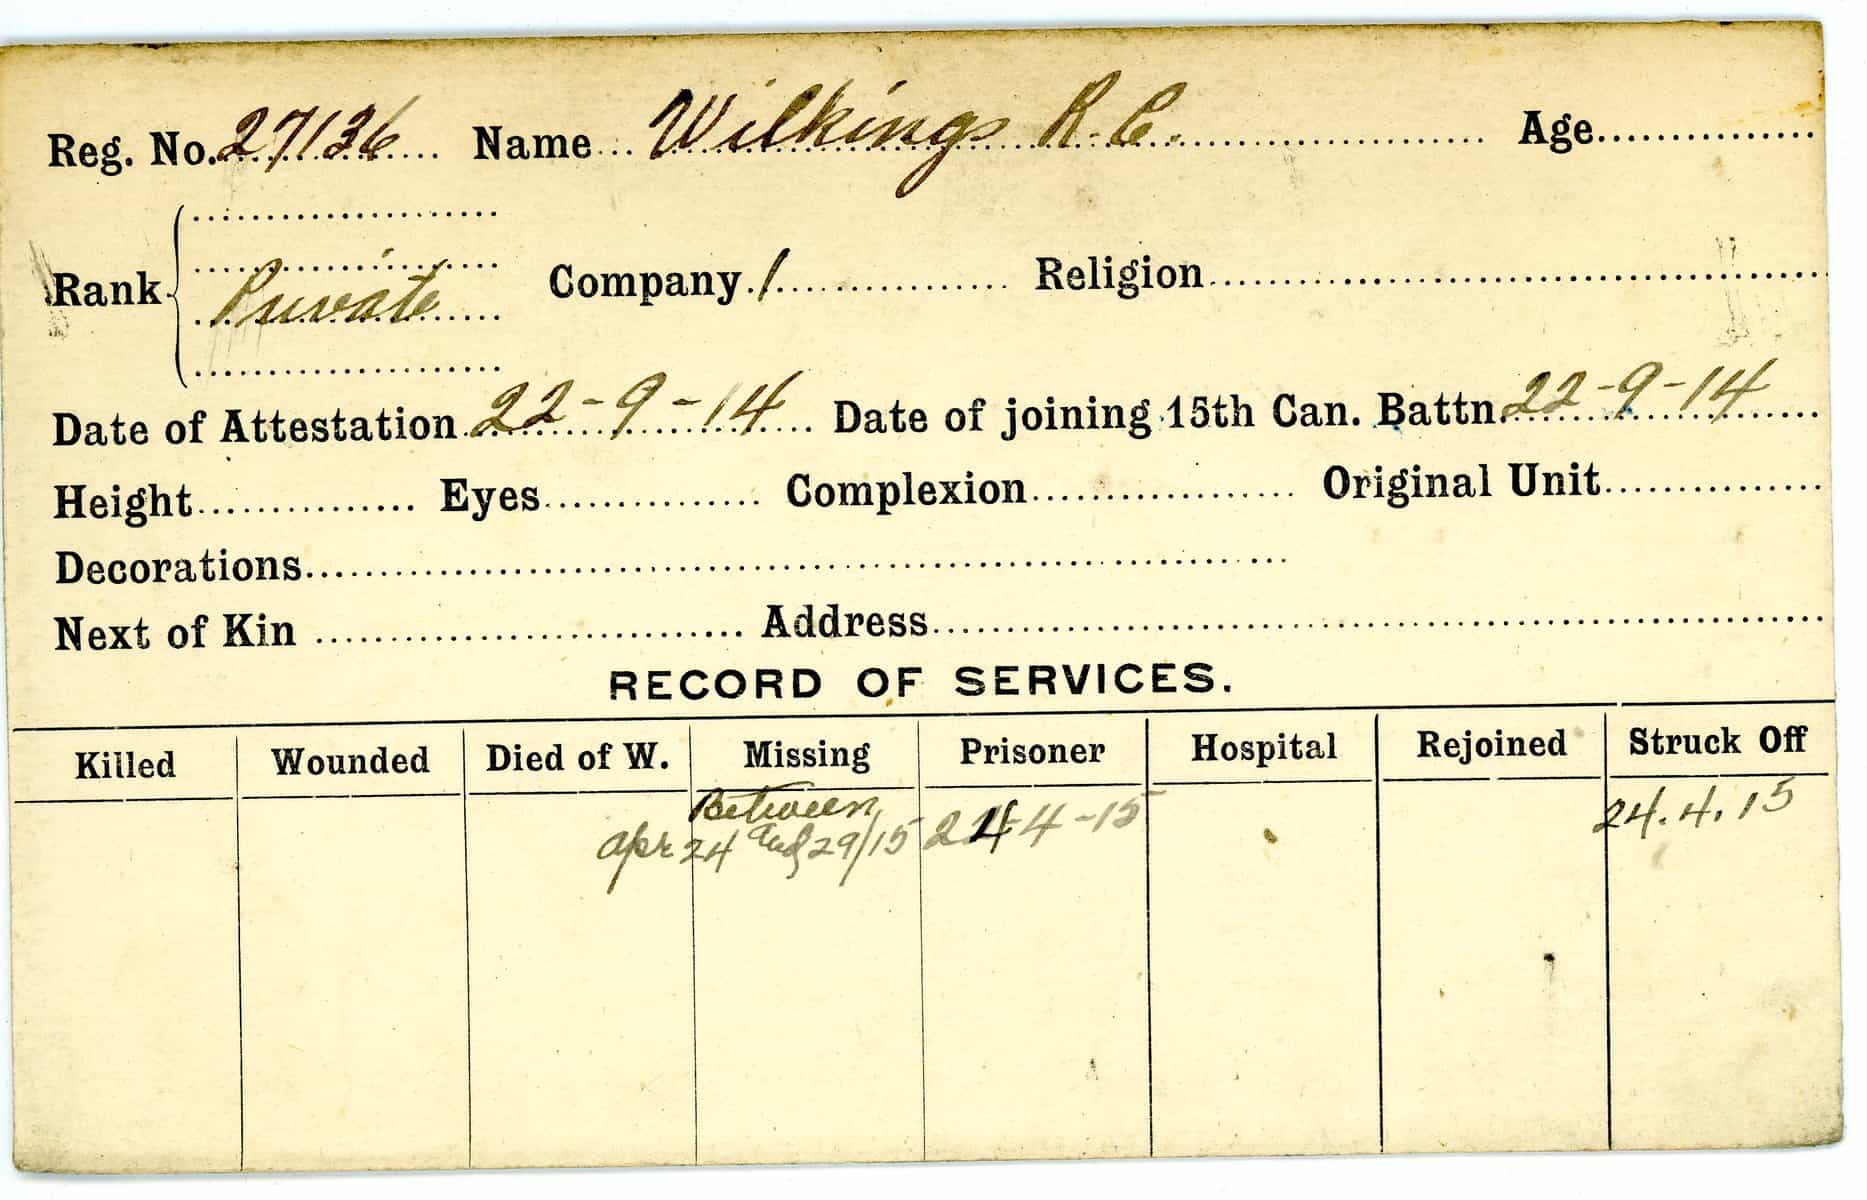 Reg. No. 27136 Name Wilkings R. C. Age
Rank Private Company 1 Religion
Date of Attestation 22-9-14 Date of joining 15th Can. Battn. 22-9-14
Height Eyes Complexion Original Unit
Decorations
Next of Kin Address
RECORD OF SERVICES.
Killed Wounded Died of W. Missing Prisoner Hospital Rejoined Struck Off
Between
apr 24 and 29/15 24-4-15 24.4.15